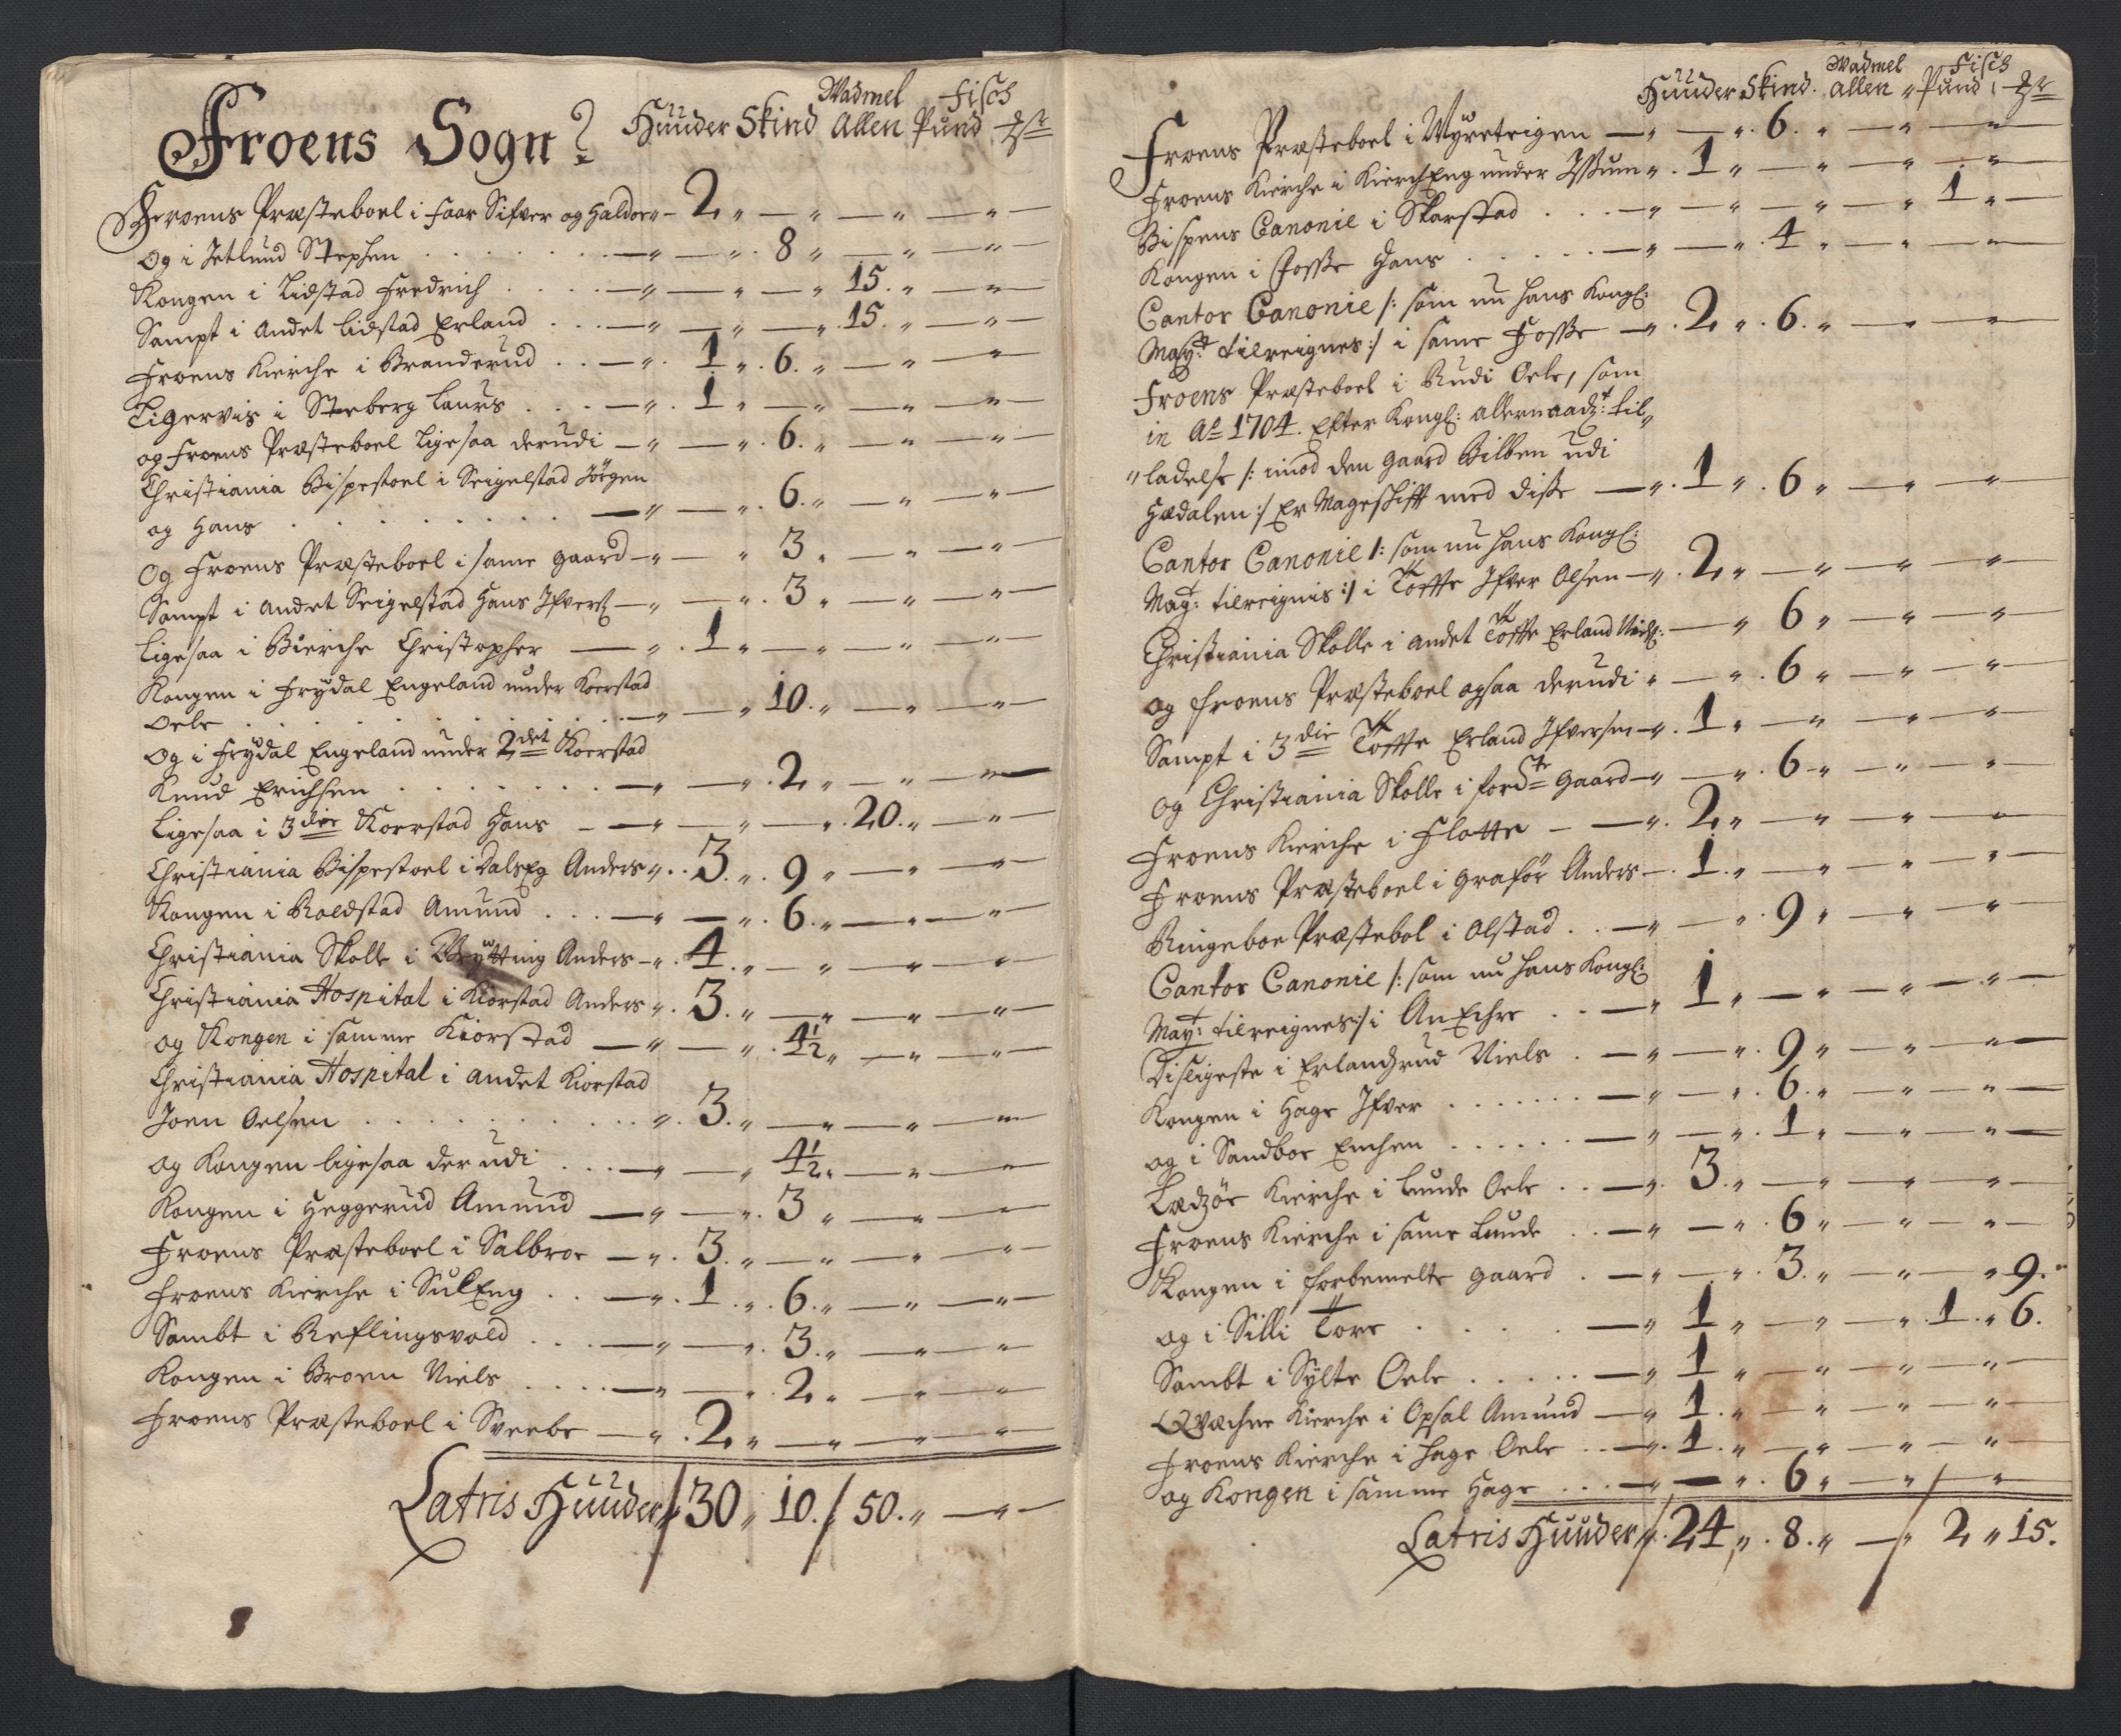 Froens Sogn
Huuder Skind Wadmel Allen Fisch Pund
Froens Præsteboel i Faar Sifver og Haldor 2
Og i Jetlund Stephen 8
Kongen i Lidstad Fredrich 15.
Sampt i andet Lidstad Erland 15.
Froens Kierche i Branderud 1 6.
Ligervis i Steberg Laurs 1
og Froens Præsteboel Ligesaa derudi 6.
Christiania Bispestoel i Seigelstad Jörgen
og Hans 6.
Og Froens Præsteboel i same gaard 3
Sampt i andet Seigelstad Hans Ifvers 3
Ligesaa i Bierche Christopher 1
Kongen i Frydal Engeland under Koerstad
Oele 10.
Og i Frydal Engeland under 2det Koerstad
Knud Erichsen 2
Ligesaa i 3die Koerstad Hans 20.
Christiania Bispestoel i Dalseg Anders 3. 9
Kongen i Roldstad Amund 6.
Christiania Skolle i Brytting Anders 4.
Christiania Hospital i Kiorstad Anders 3.
og Kongen i samme Kiorstad 4½
Christiania Hospital i andet Kiorstad
Joen Oelsen 3.
og Kongen ligesaa der udi 4½
Kongen i Heggerud Amund 3
Froens Præsteboel i Salbroe 3.
Froens Kierche i SulEng 1. 6.
Sambt i Reflingsvold 3.
Kongen i Broen Niels 2
Froens Præsteboel i Sveebe 2
Latris Huuder 30 10. 50.
Huuder Skind. Wadmel Allen Fisch Pund
Froens Præsteboel i Wyretrigen 6.
Froens Kierche i KierchEng under Issum 1
Bispens Canonie i Skarstad 1
Kongen i Fosse Hans 4
Cantor Canonie /: som nu hans Kongl:
Mayt: tilreignes :/ i same Fosse 2 6.
Froens Præsteboel i Rudi Oele, som
in Ao 1704. Efter Kongl: allernaadt: til
ladelse /: imod den gaard Bilben udi
Hædalen :/ Er Mageskifft med disse 1 6
Cantor Canonie /: som nu hans Kongl:
Mayt: tilreignis :/ i Töffte Ifver Olsen 2
Christiania Skolle i andet Töffte Erland Niels: 6
og Froens Præsteboel ogsaa derudi 6
Sampt i 3die Töffte Erland Ifversen 1
og Christiania Skolle i fordte gaard 6
Froens Kierche i Flotte 2
Froens Præsteboel i Graför Anders 1.
Ringeboe Præstebol i Olstad 9
Cantor Canonie /: som nu hans Kongl:
Mayt: tilreignes :/ i AnEchre 1
Disligeste i Erlandzrud Niels 9
Kongen i Hage Ifver 6.
og i Sandboe Enchen 1
Lædzöe Kierche i Lunde Oele 3.
Froens Kierche i same Lunde 6
Kongen i forbemelte gaard 3. 9.
og i Silli Tore 1 1. 6.
Sambt i Sylte Oele 1
Qvæchne Kierche i Opsal Amund 1.
Froens Kierche i Hage Oele 1.
og Kongen i samme Hage 6
Latris Huuder 24 8. 2 15.